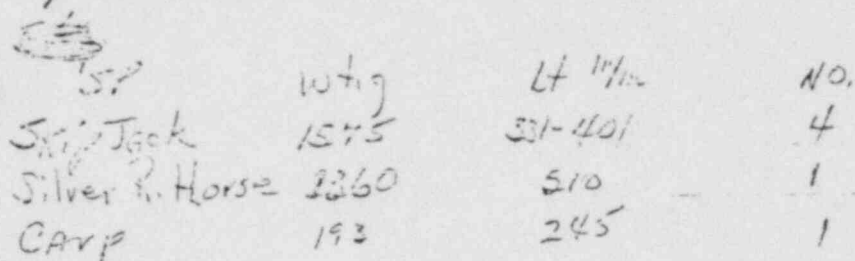 SP wt.g Lt m/m NO.
Skip Jack 1575 331-401 4
Silver R. Horse 2260 510 1
CArp 193 245 1